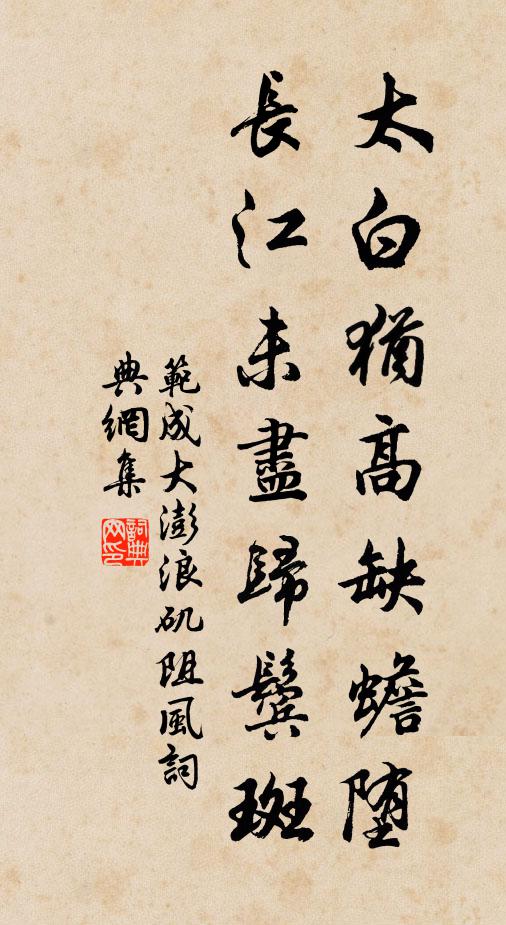 太白猶高缺蟾堕
長江未盡歸鬢斑
範成大澎浪矶阻風詞
典網集
詞典網印